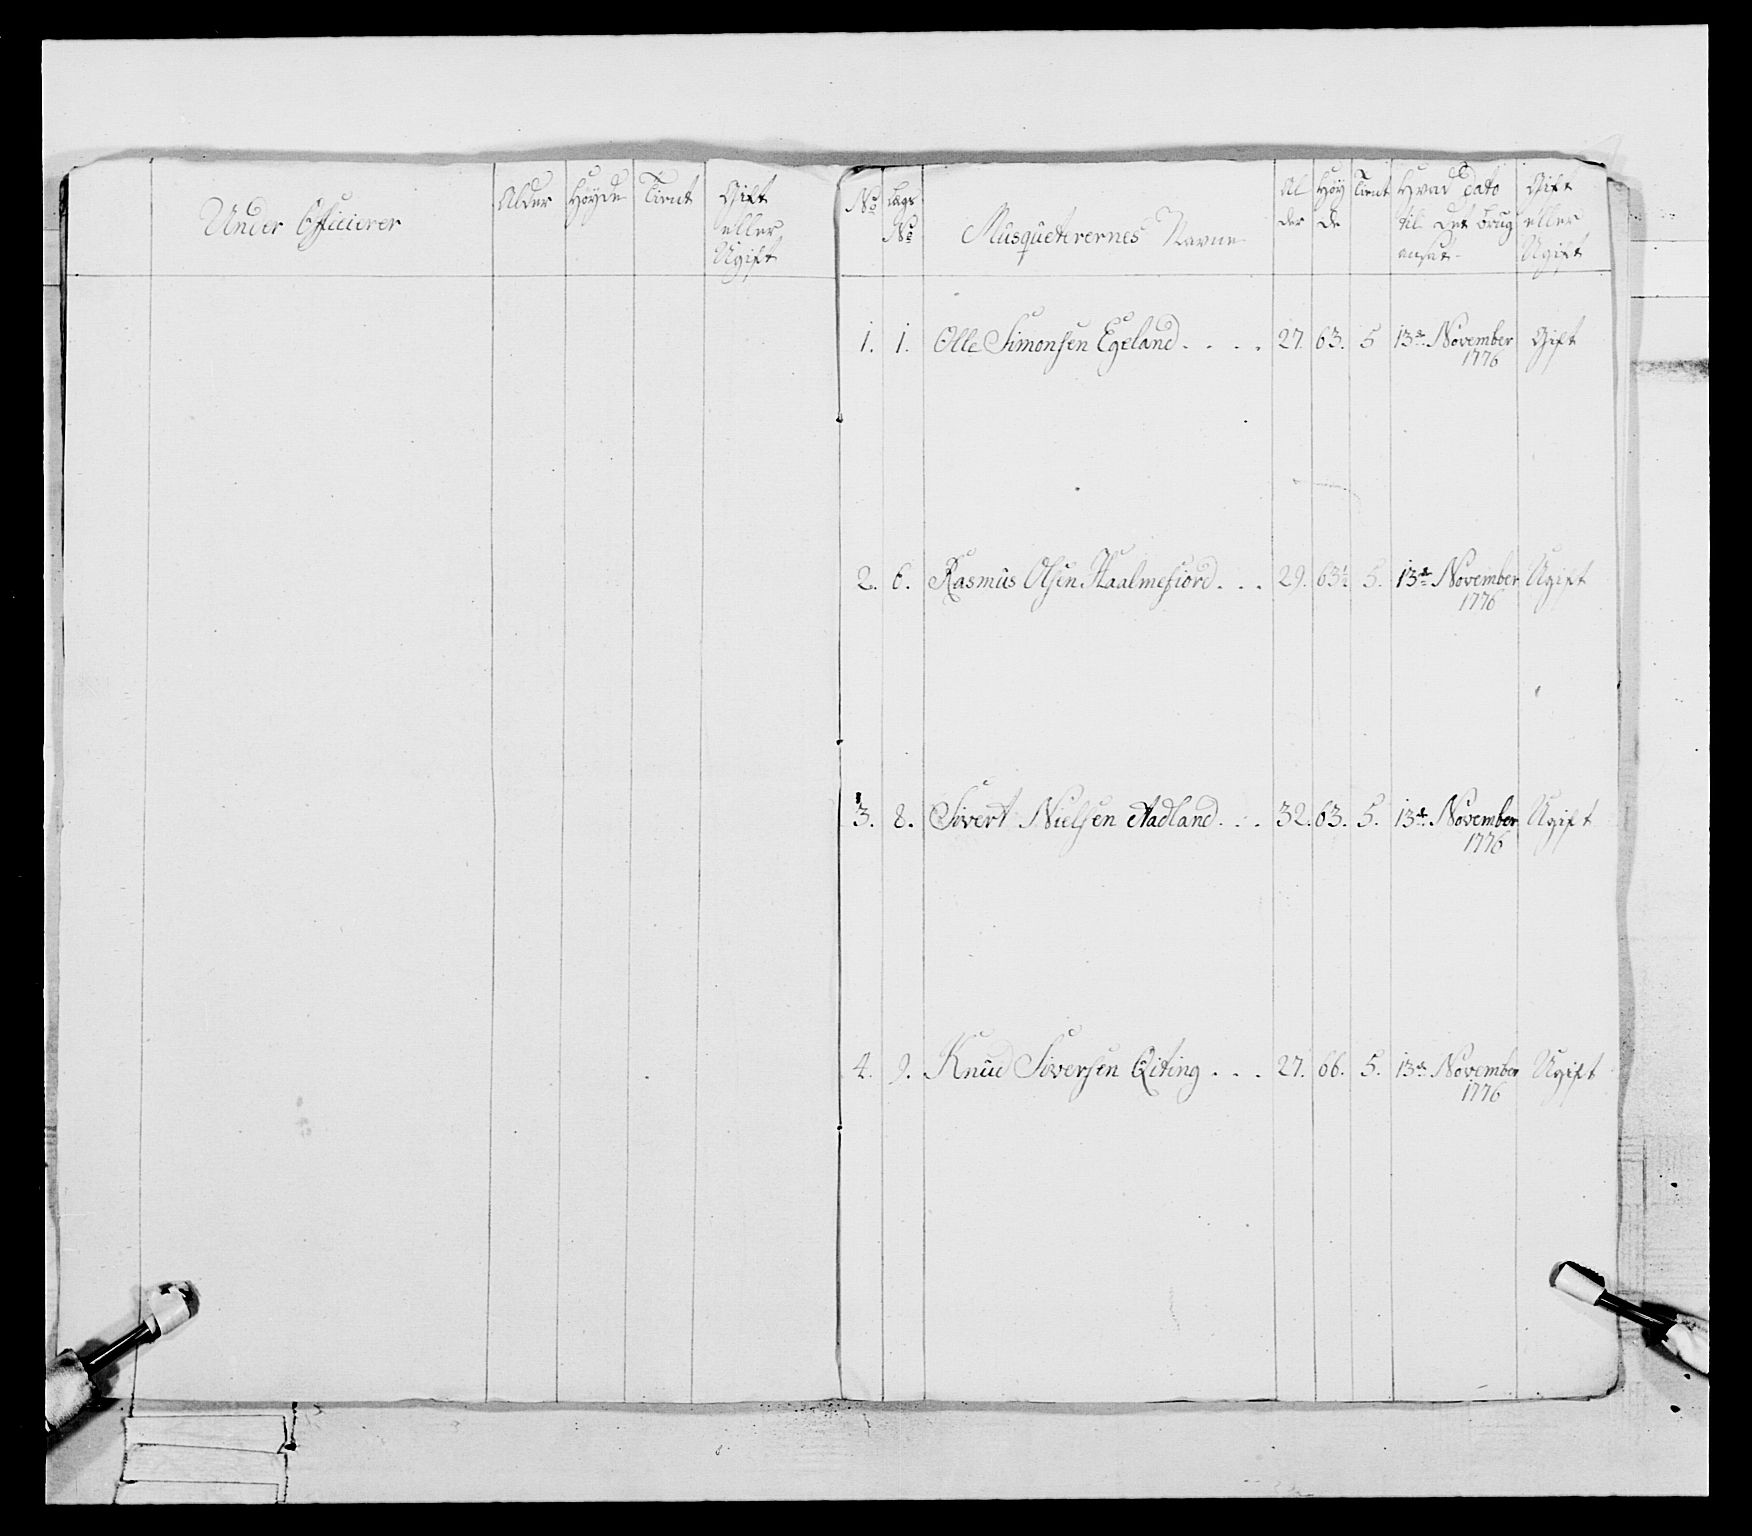 Under Officierer
Alder
Høyde
Tient
Gift
eller
Ugift
No
Lægs
No
Musqueterernes Navne
Al
der
Høy
de
Tient
Hvad Dato
til det brug
ansat
Gift
eller
Ugift
1. 1. Olle Simonsen Egeland. . . . 27. 63. 5 13de November Gift
1776
2. 6. Rasmus Olsen Haalmefiord. . . 29. 63½ 5. 13de November Ugift
1776
3. 8. Sivert Nielsen Aadland. . . 32. 63. 5. 13de November Ugift
1776
4. 9. Knud Siversen Qiting . . . 27. 66. 5. 13de November Ugift
1776